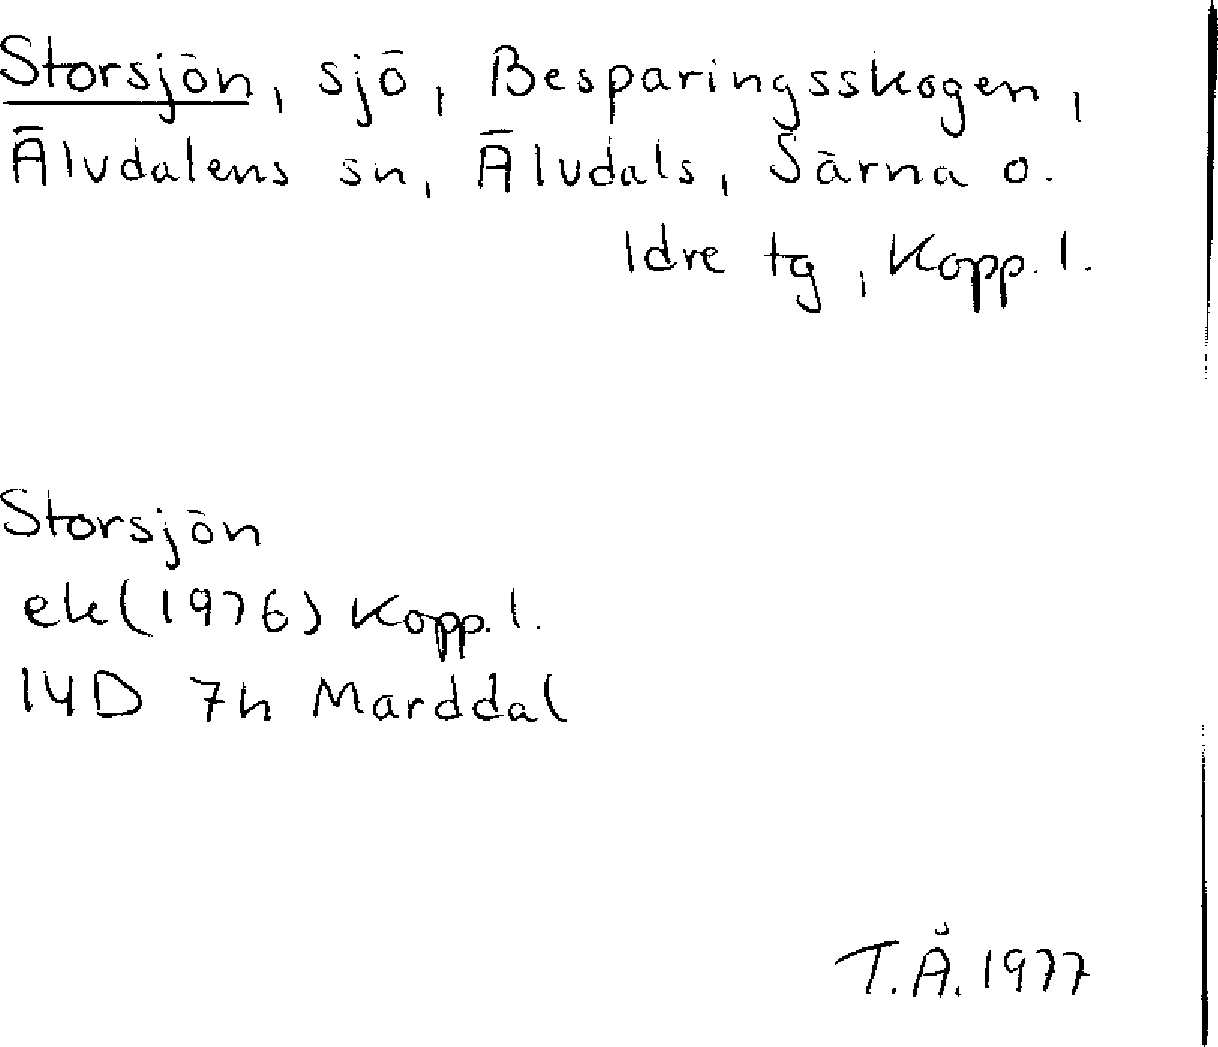 Storsjön, sjö, Besparingsskogen,
Älvdalens sn, Älvdals, Särna o.
Idre tg, Kopp. l.
Storsjön
ek (1976) Kopp. l.
14D 7h Marddal
T.Å. 1977